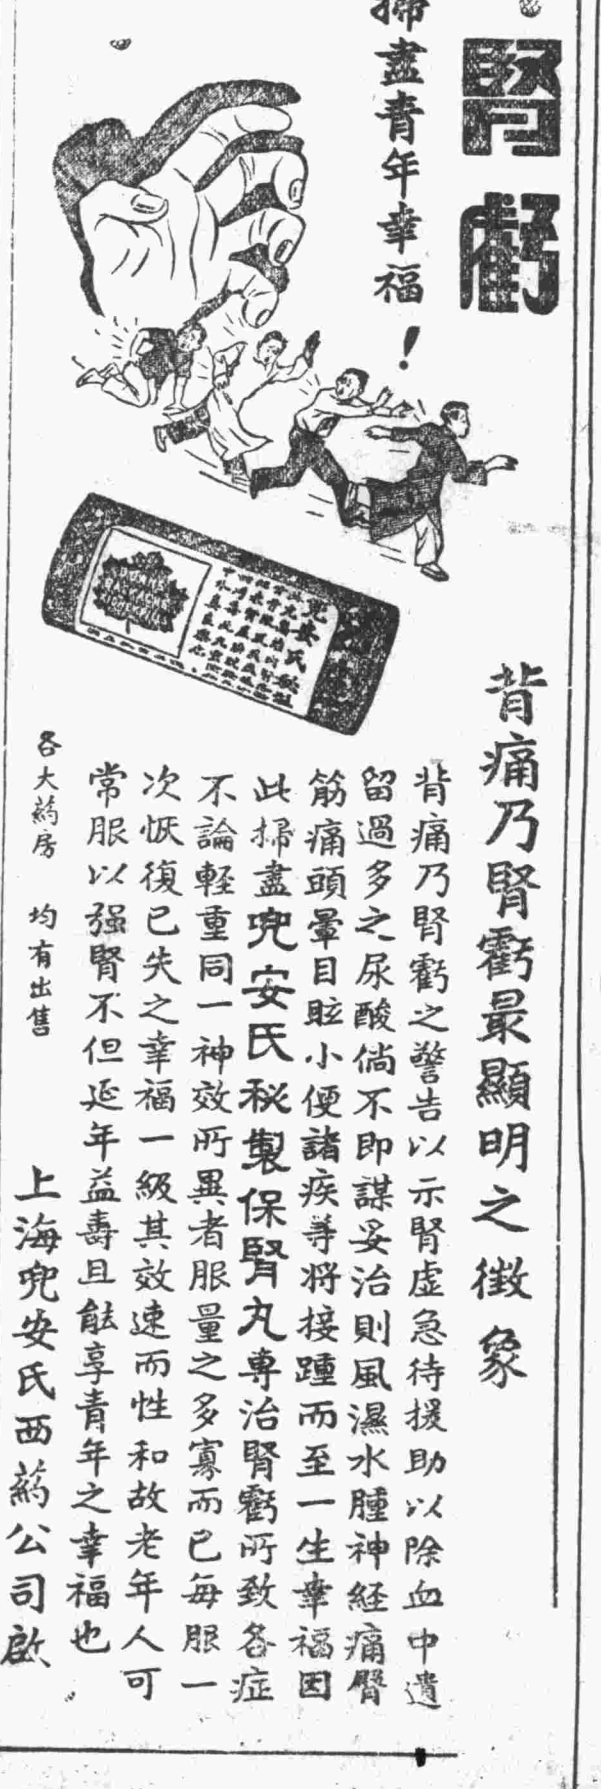 腎虧
掃盡青年幸福！
背痛乃腎虧最顯明之徵象
背痛乃腎虧之警告以示腎虛急待援助以除血中遺
留過多之尿酸倘不即謀妥治則風濕水腫神經痛腎
筋痛頭暈目眩小便諸疾等將接踵而至一生幸福因
此掃盡兜安氏秘製保腎丸專治腎虧所致各症
不論輕重同一神效所異者服量之多寡而已每服一
次恢復已失之幸福一級其效速而性和故老年人可
常服以强腎不但延年益壽且能享青年之幸福也
各大葯房 均有出售
上海兜安氏西葯公司啟
兜安氏秘製